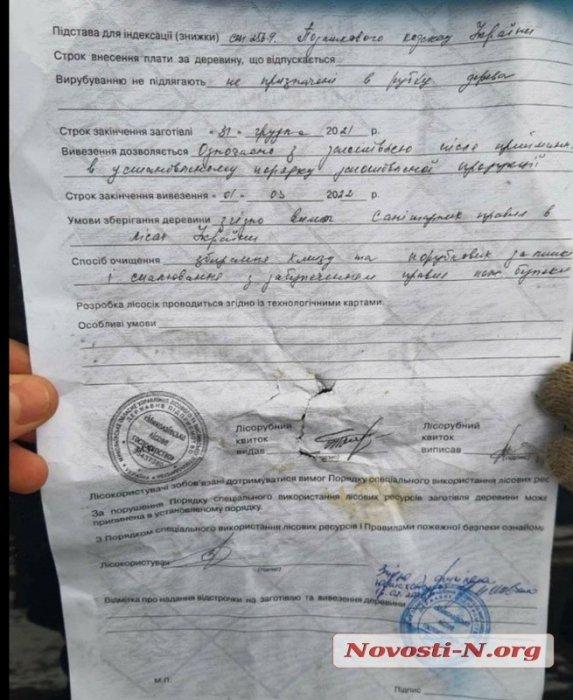 Підстава для індексації (знижки) ст. 257.9. Податкового кодексу України
Строк внесення плати за деревину, що відпускається
Вирубуванню не підлягають не призначені в рубку дерева
Строк закінчення заготівлі «31» грудня 2021 р.
Вивезення дозволяється Одночасно з заготівлею після приймання
в установленому порядку заготовленої продукції
Строк закінчення вивезення «01» 03 2022 р.
Умови зберігання деревини згідно вимог Санітарних правил в
лісах України
Спосіб очищення збирання хмизу та порубкових залишків
і спалювання з забезпеченням правил пож. безпеки
Розробка лісосік проводиться згідно із технологічними картами.
Особливі умови
Лісорубний
квиток
видав
Лісорубний
квиток
виписав
Лісокористувачі зобов'язані дотримуватися вимог Порядку спеціального використання лісових рес
За порушення Порядку спеціального використання лісових ресурсів заготівля деревини може
припинена в установленому порядку.
З Порядком спеціального використання лісових ресурсів і Правилами пожежної безпеки ознайом
Лісокористувач
Відмітка про надання відстрочки на заготівлю та вивезення деревини
М.П.
Підпис
Novosti-N.org